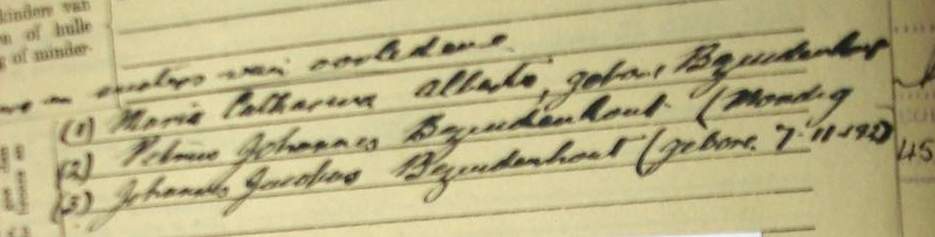 kinders van
of hulle
of minder-
susters van oorledene
(1) Maria Catharina Alberts, gebore Bezuidenhout
(2) Petrus Johannes Bezuidenhout (Mondig
(3) Johannes Jacobus Bezuidenhout (gebore 7-11-1927)
45